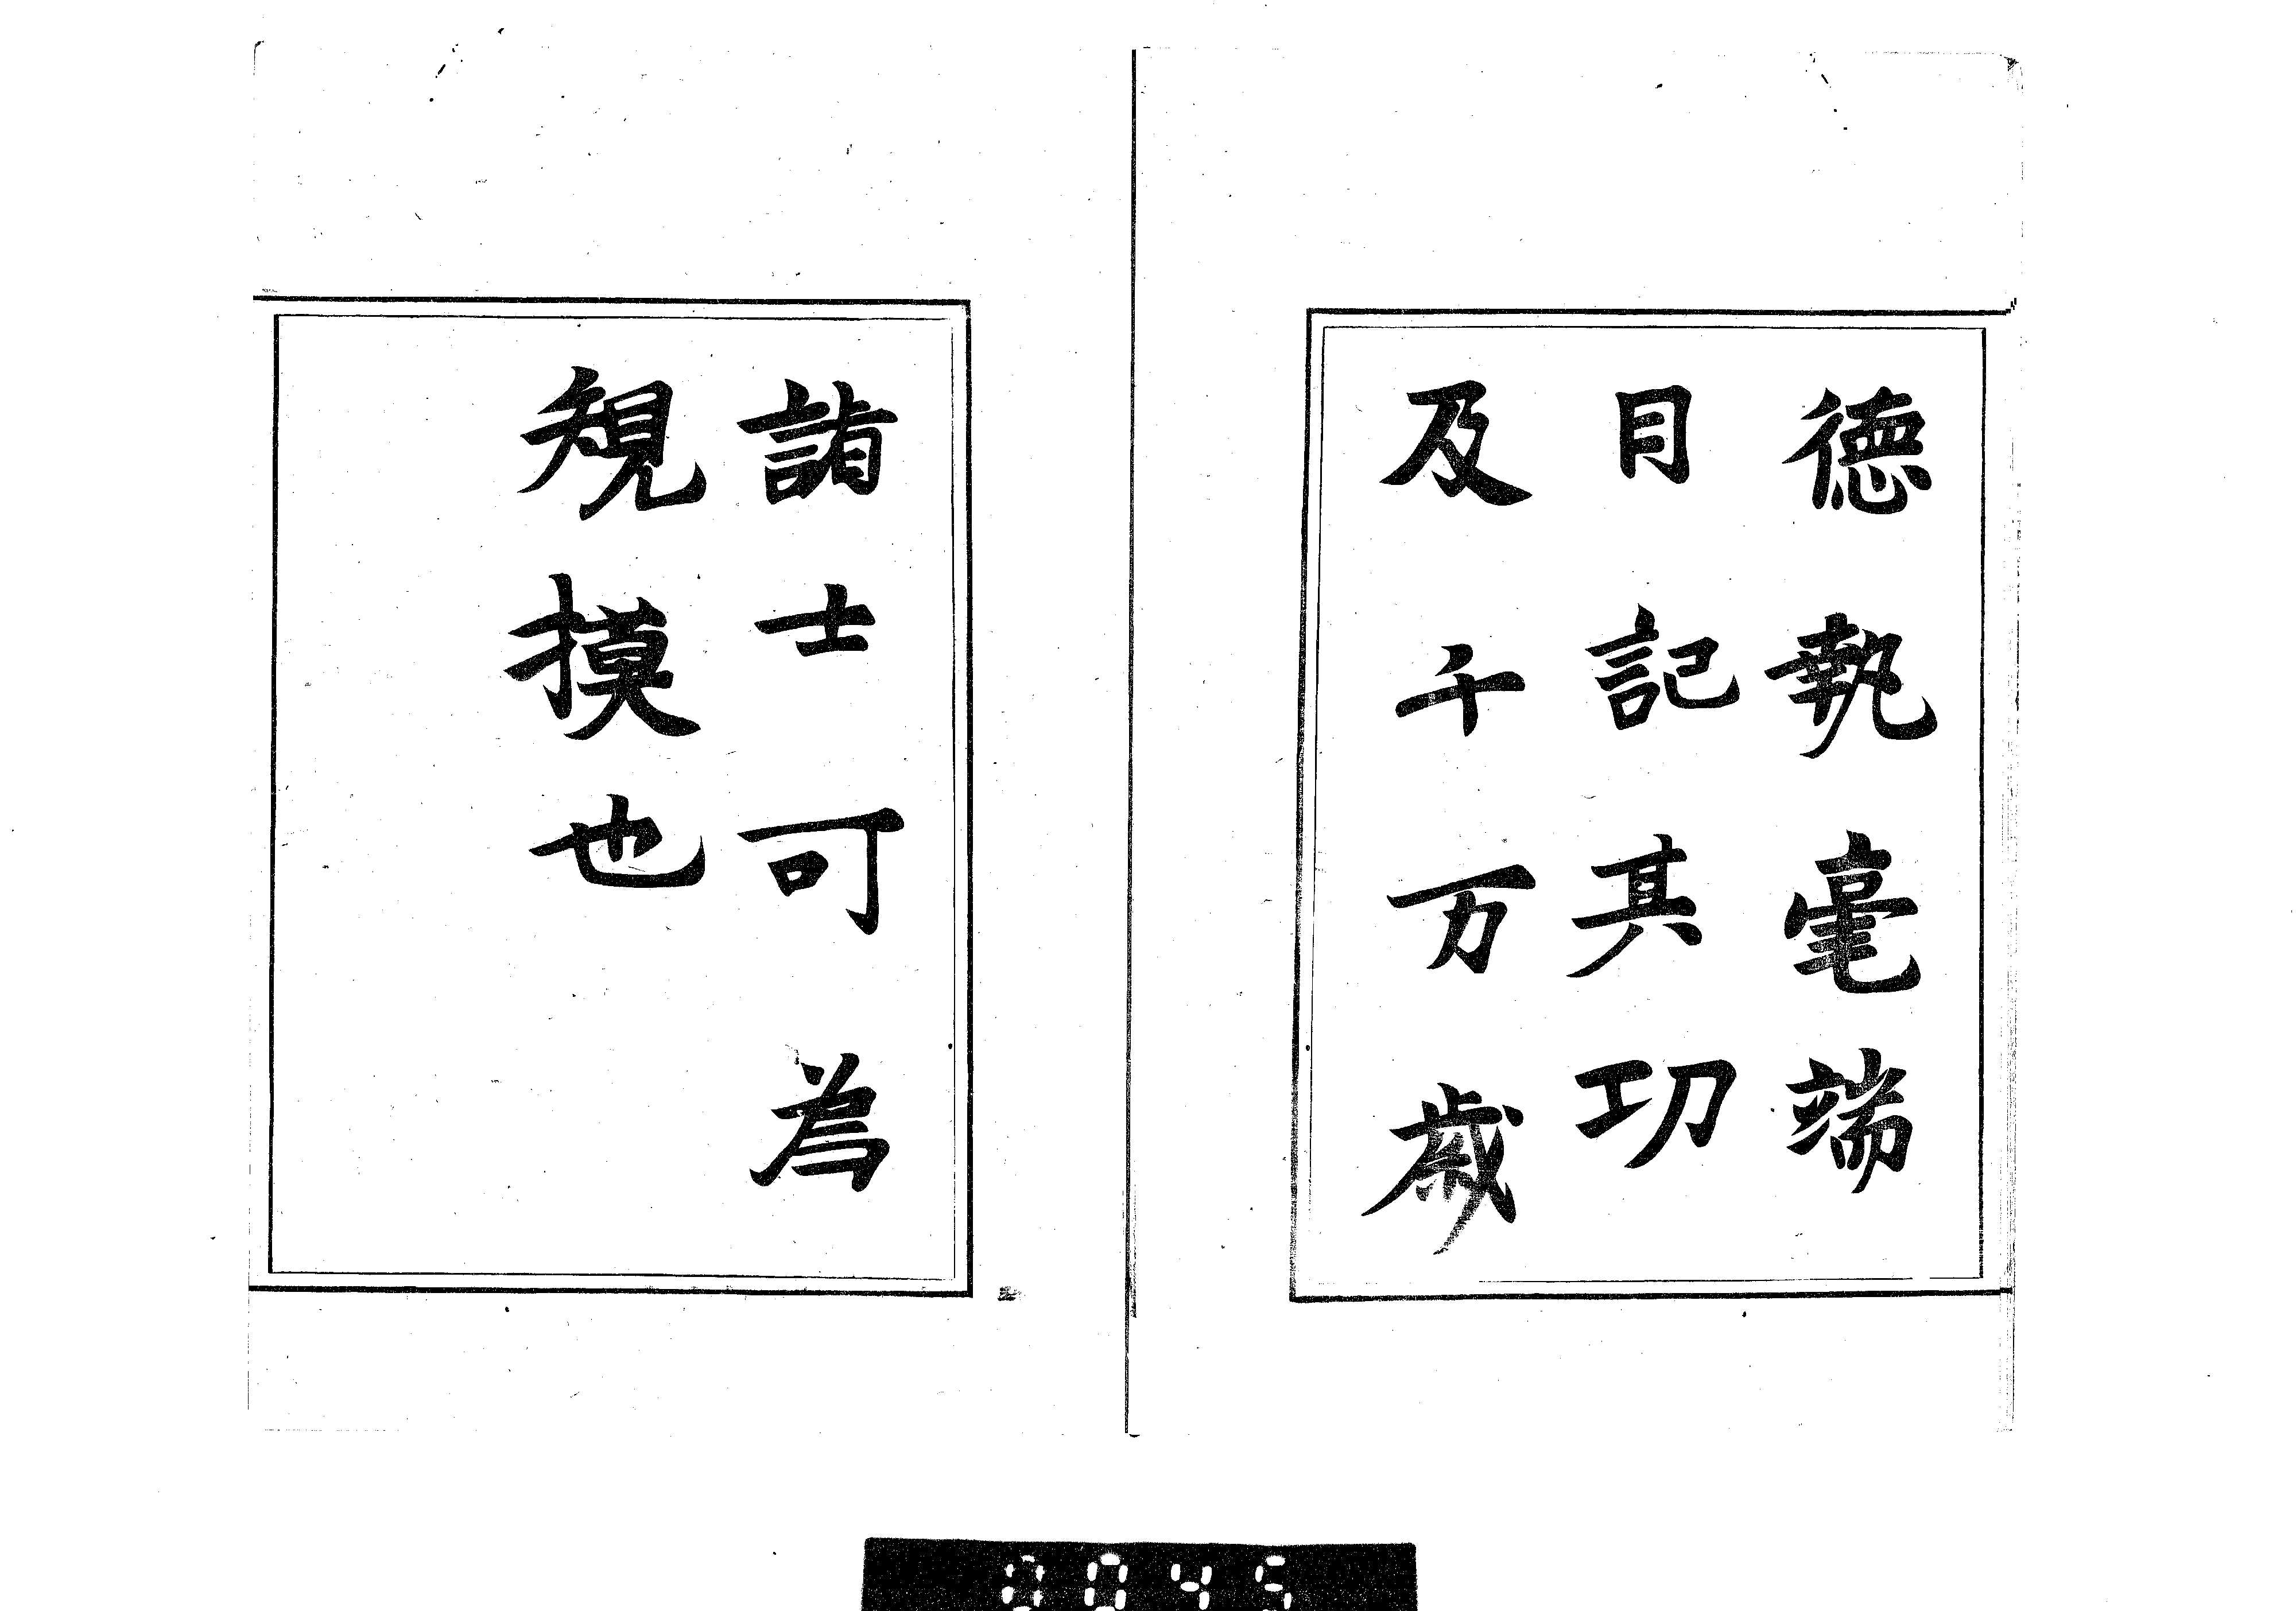 德執毫端
目記其功
及千万歲
諸士可為
規摸也
0045